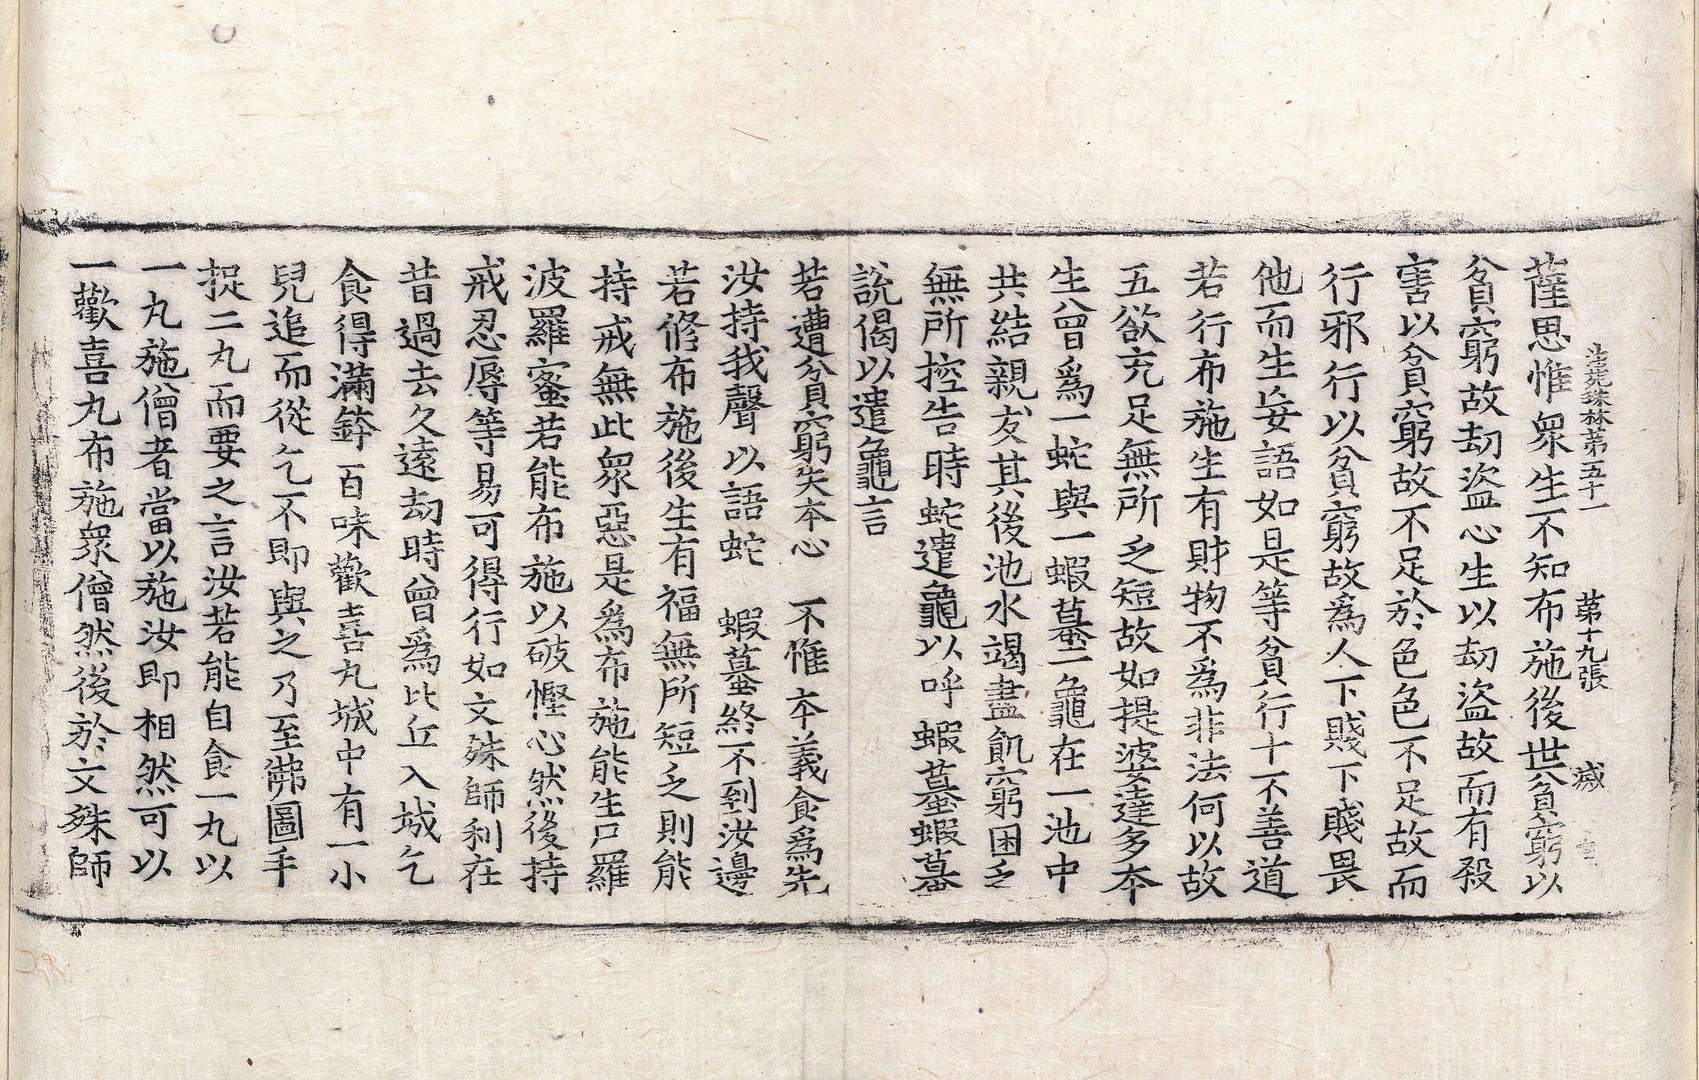 法苑珠林第五十一 第十九張
薩思惟衆生不知布施後世貧窮以
貧窮故劫盜心生以劫盜故而有殺
害以貧窮故不足於色色不足故而
行邪行以貧窮故爲人下賤下賤畏
他而生妄語如是等貧行十不善道
若行布施生有財物不爲非法何以故
五欲充足無所乏短故如提婆達多本
生曾爲一蛇與一蝦蟇一龜在一池中
共結親友其後池水竭盡飢窮困乏
無所控告時蛇遣龜以呼蝦蟇蝦蟇
說偈以遣龜言
若遭貧窮失本心 不惟本義食爲先
汝持我聲以語蛇 蝦蟇終不到汝邊
若修布施後生有福無所短乏則能
持戒無此衆惡是爲布施能生尸羅
波羅蜜若能布施以破慳心然後持
戒忍辱等易可得行如文殊師利在
昔過去久遠劫時曾爲比丘入城乞
食得滿鉢百味歡喜丸城中有一小
兒追而從乞不即與之乃至佛圖手
捉二丸而要之言汝若能自食一丸以
一丸施僧者當以施汝即相然可以
一歡喜丸布施衆僧然後於文殊師